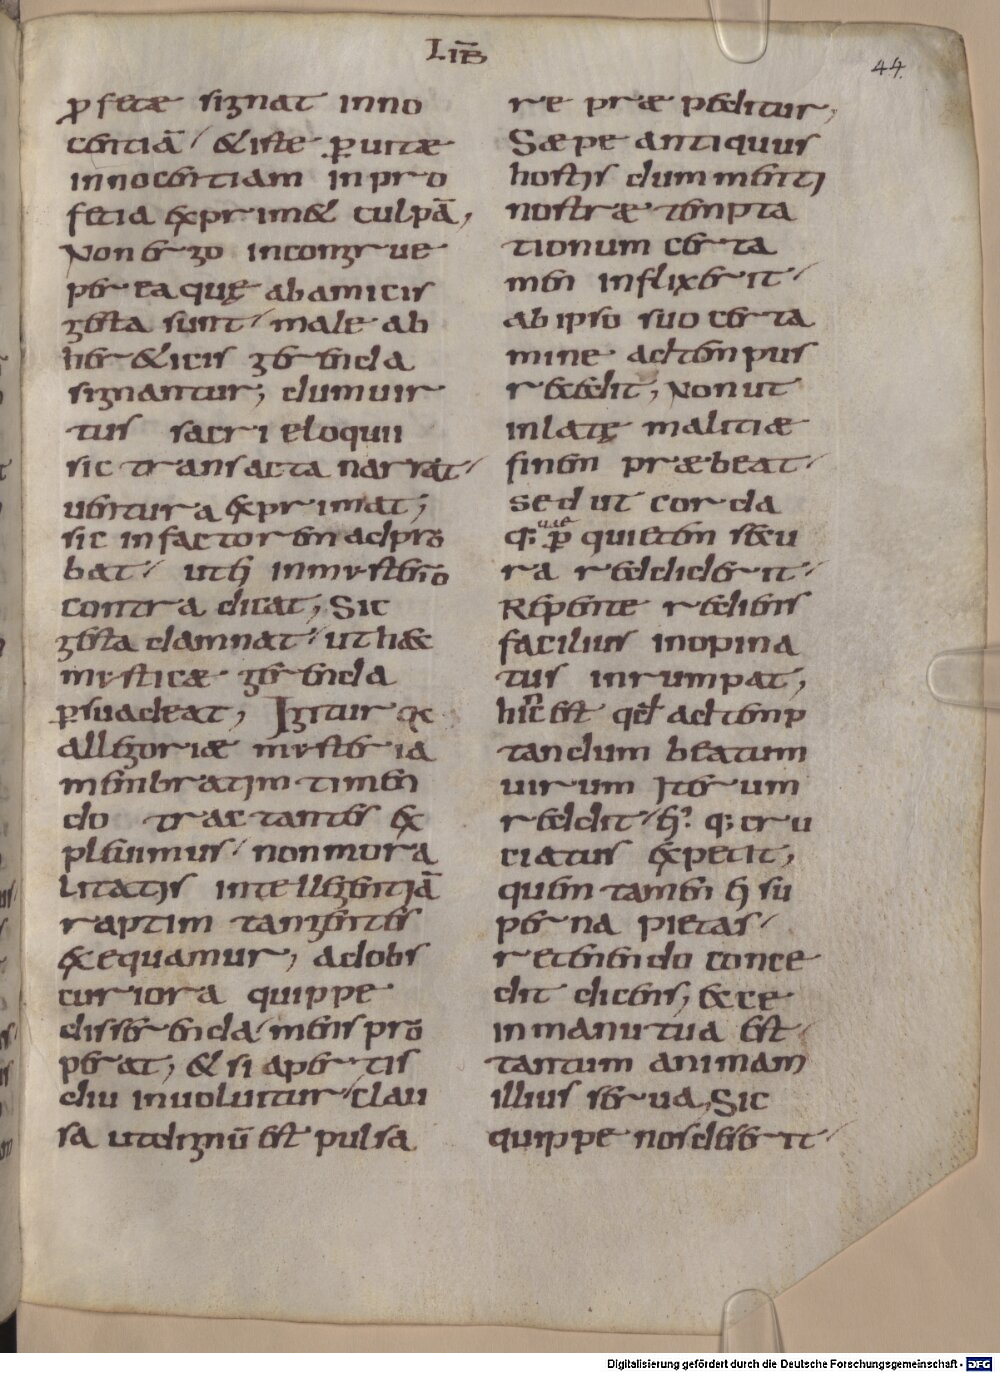 LIB̅
44.
ꝓfetæ signat inno
centiā, & iste ꝑ uitæ
innocentiam in pro
fetia exprim& culpā,
Non ergo incongrue
per ea quę ab amicis
gesta sunt, male ab
her&icis gerenda
signantur; dum uir
tus sacri eloquii
sic transacta narrat,
uentura exprimat;
sic in factorem adpro
bat, ut ħ in mysterio
contradicat; Sic
gesta damnat, ut hæc
mysticæ gerenda
ꝑsuadeat; Igitur ex
allegoriæ mysteria
membratim timen
do tractantes ex
pleuimus, non mora
litatis intellegentiā
raptim tangentes
exequamur; ad obs
curiora quippe
disserenda mens pro
perat; & si apertis
diu inuoluitur, clau
sa ut dignū est pulsa
re præpeditur;
Sæpe antiquus
hostis dum menti
nostræ tempta
tionum certa
men inflixerit,
ab ipso suo certa
mine ad tempus
recedit; Non ut
inlatę malitiæ
finem præbeat,
sed ut corda
q; ꝑ quietem secu
ra reddiderit,
Repente rediens
facilius inopina
tus inrumpat;
hinc est qđ ad temp
tandum beatum
uirum Iterum
reddit, ħ. q; cru
ciatus expetit;
quem tamen ħ su
perna pietas,
retenendo conce
dit dicens; ecce
in manu tua est,
tantum animam
illius serua, Sic
quippe nos deserit,
Digitalisierung gefördert durch die Deutsche Forschungsgemeinschaft - DFG